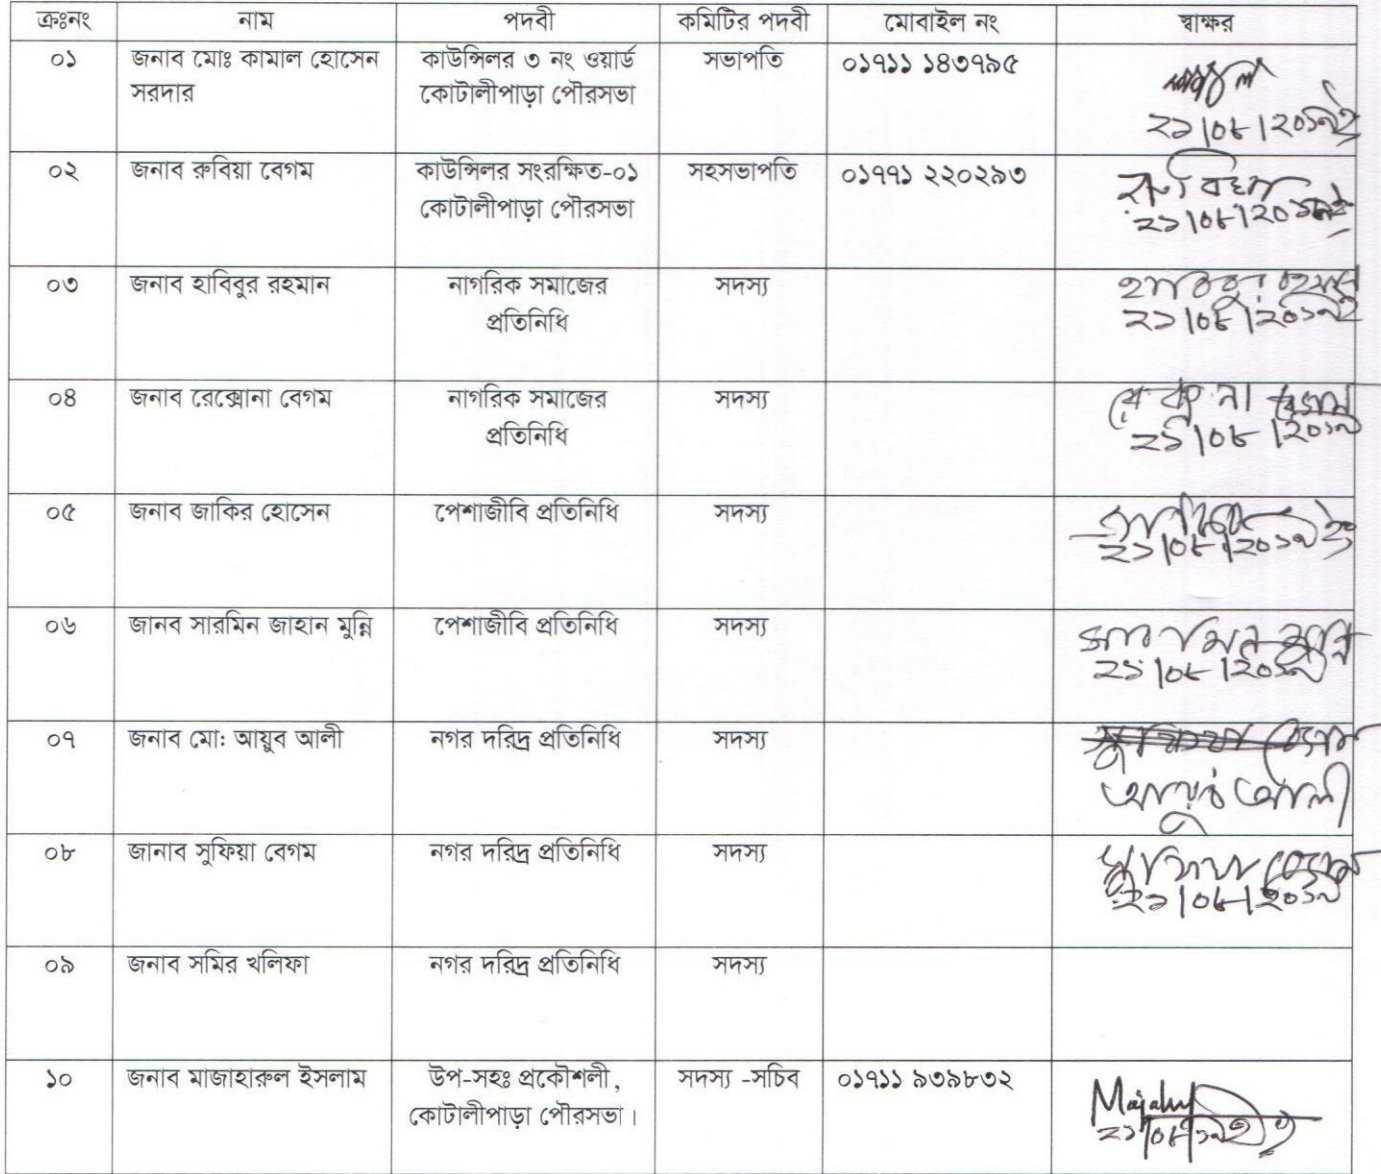 ক্রঃনং নাম পদবী কমিটির পদবী মোবাইল নং স্বাক্ষর
০১ জনাব মোঃ কামাল হোসেন কাউন্সিলর ৩ নং ওয়ার্ড সভাপতি ০১৭১১ ১৪৩৭৯৫
সরদার কোটালীপাড়া পৌরসভা
২১|০৮|২০১৯ইং
০২ জনাব রুবিয়া বেগম কাউন্সিলর সংরক্ষিত-০১ সহসভাপতি ০১৭৭১ ২২০২৯৩ রুবিয়া
কোটালীপাড়া পৌরসভা ২১|০৮|২০১৯ইং
০৩ জনাব হাবিবুর রহমান নাগরিক সমাজের সদস্য হাবিবুর রহমান
প্রতিনিধি ২১|০৮|২০১৯ইং
০৪ জনাব রেক্সোনা বেগম নাগরিক সমাজের সদস্য রেকসনা বেগম
প্রতিনিধি ২১|০৮|২০১৯
০৫ জনাব জাকির হোসেন পেশাজীবি প্রতিনিধি সদস্য
২১|০৮|২০১৯ইং
০৬ জানব সারমিন জাহান মুন্নি পেশাজীবি প্রতিনিধি সদস্য সারমিন মুন্নি
২১|০৮|২০১৯
০৭ জনাব মো: আয়ুব আলী নগর দরিদ্র প্রতিনিধি সদস্য
আয়ুব আলী
০৮ জানাব সুফিয়া বেগম নগর দরিদ্র প্রতিনিধি সদস্য সুফিয়া বেগম
২১|০৮|২০১৯
০৯ জনাব সমির খলিফা নগর দরিদ্র প্রতিনিধি সদস্য
১০ জনাব মাজাহারুল ইসলাম উপ-সহঃ প্রকৌশলী, সদস্য -সচিব ০১৭১১ ৯৩৯৮৩২
কোটালীপাড়া পৌরসভা।